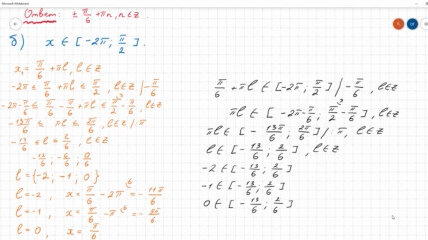 Ответ: ± π/6 + πn, n ∈ Z.
б) x ∈ [-2π; π/2].
x₁ = π/6 + πl, l ∈ Z
-2π ≤ π/6 + πl ≤ π/2, l ∈ Z | -π/6
-2π - π/6 ≤ π/6 - π/6 + πl ≤ π/2 - π/6, l ∈ Z
-13π/6 ≤ πl ≤ 2π/6, l ∈ Z | : π
-13/6 ≤ l ≤ 2/6, l ∈ Z
-13/6; -6/6; 0/6
l = {-2, -1, 0}
l = -2, x = π/6 - 2π = -11π/6
l = -1, x = π/6 - π = -5π/6
l = 0, x = π/6
π/6 + πl ∈ [-2π; π/2] | -π/6, l ∈ Z
πl ∈ [-2π - π/6; π/2 - π/6], l ∈ Z
πl ∈ [-13π/6; 2π/6] | : π, l ∈ Z
l ∈ [-13/6; 2/6], l ∈ Z
-2 ∈ [-13/6; 2/6]
-1 ∈ [-13/6; 2/6]
0 ∈ [-13/6; 2/6]